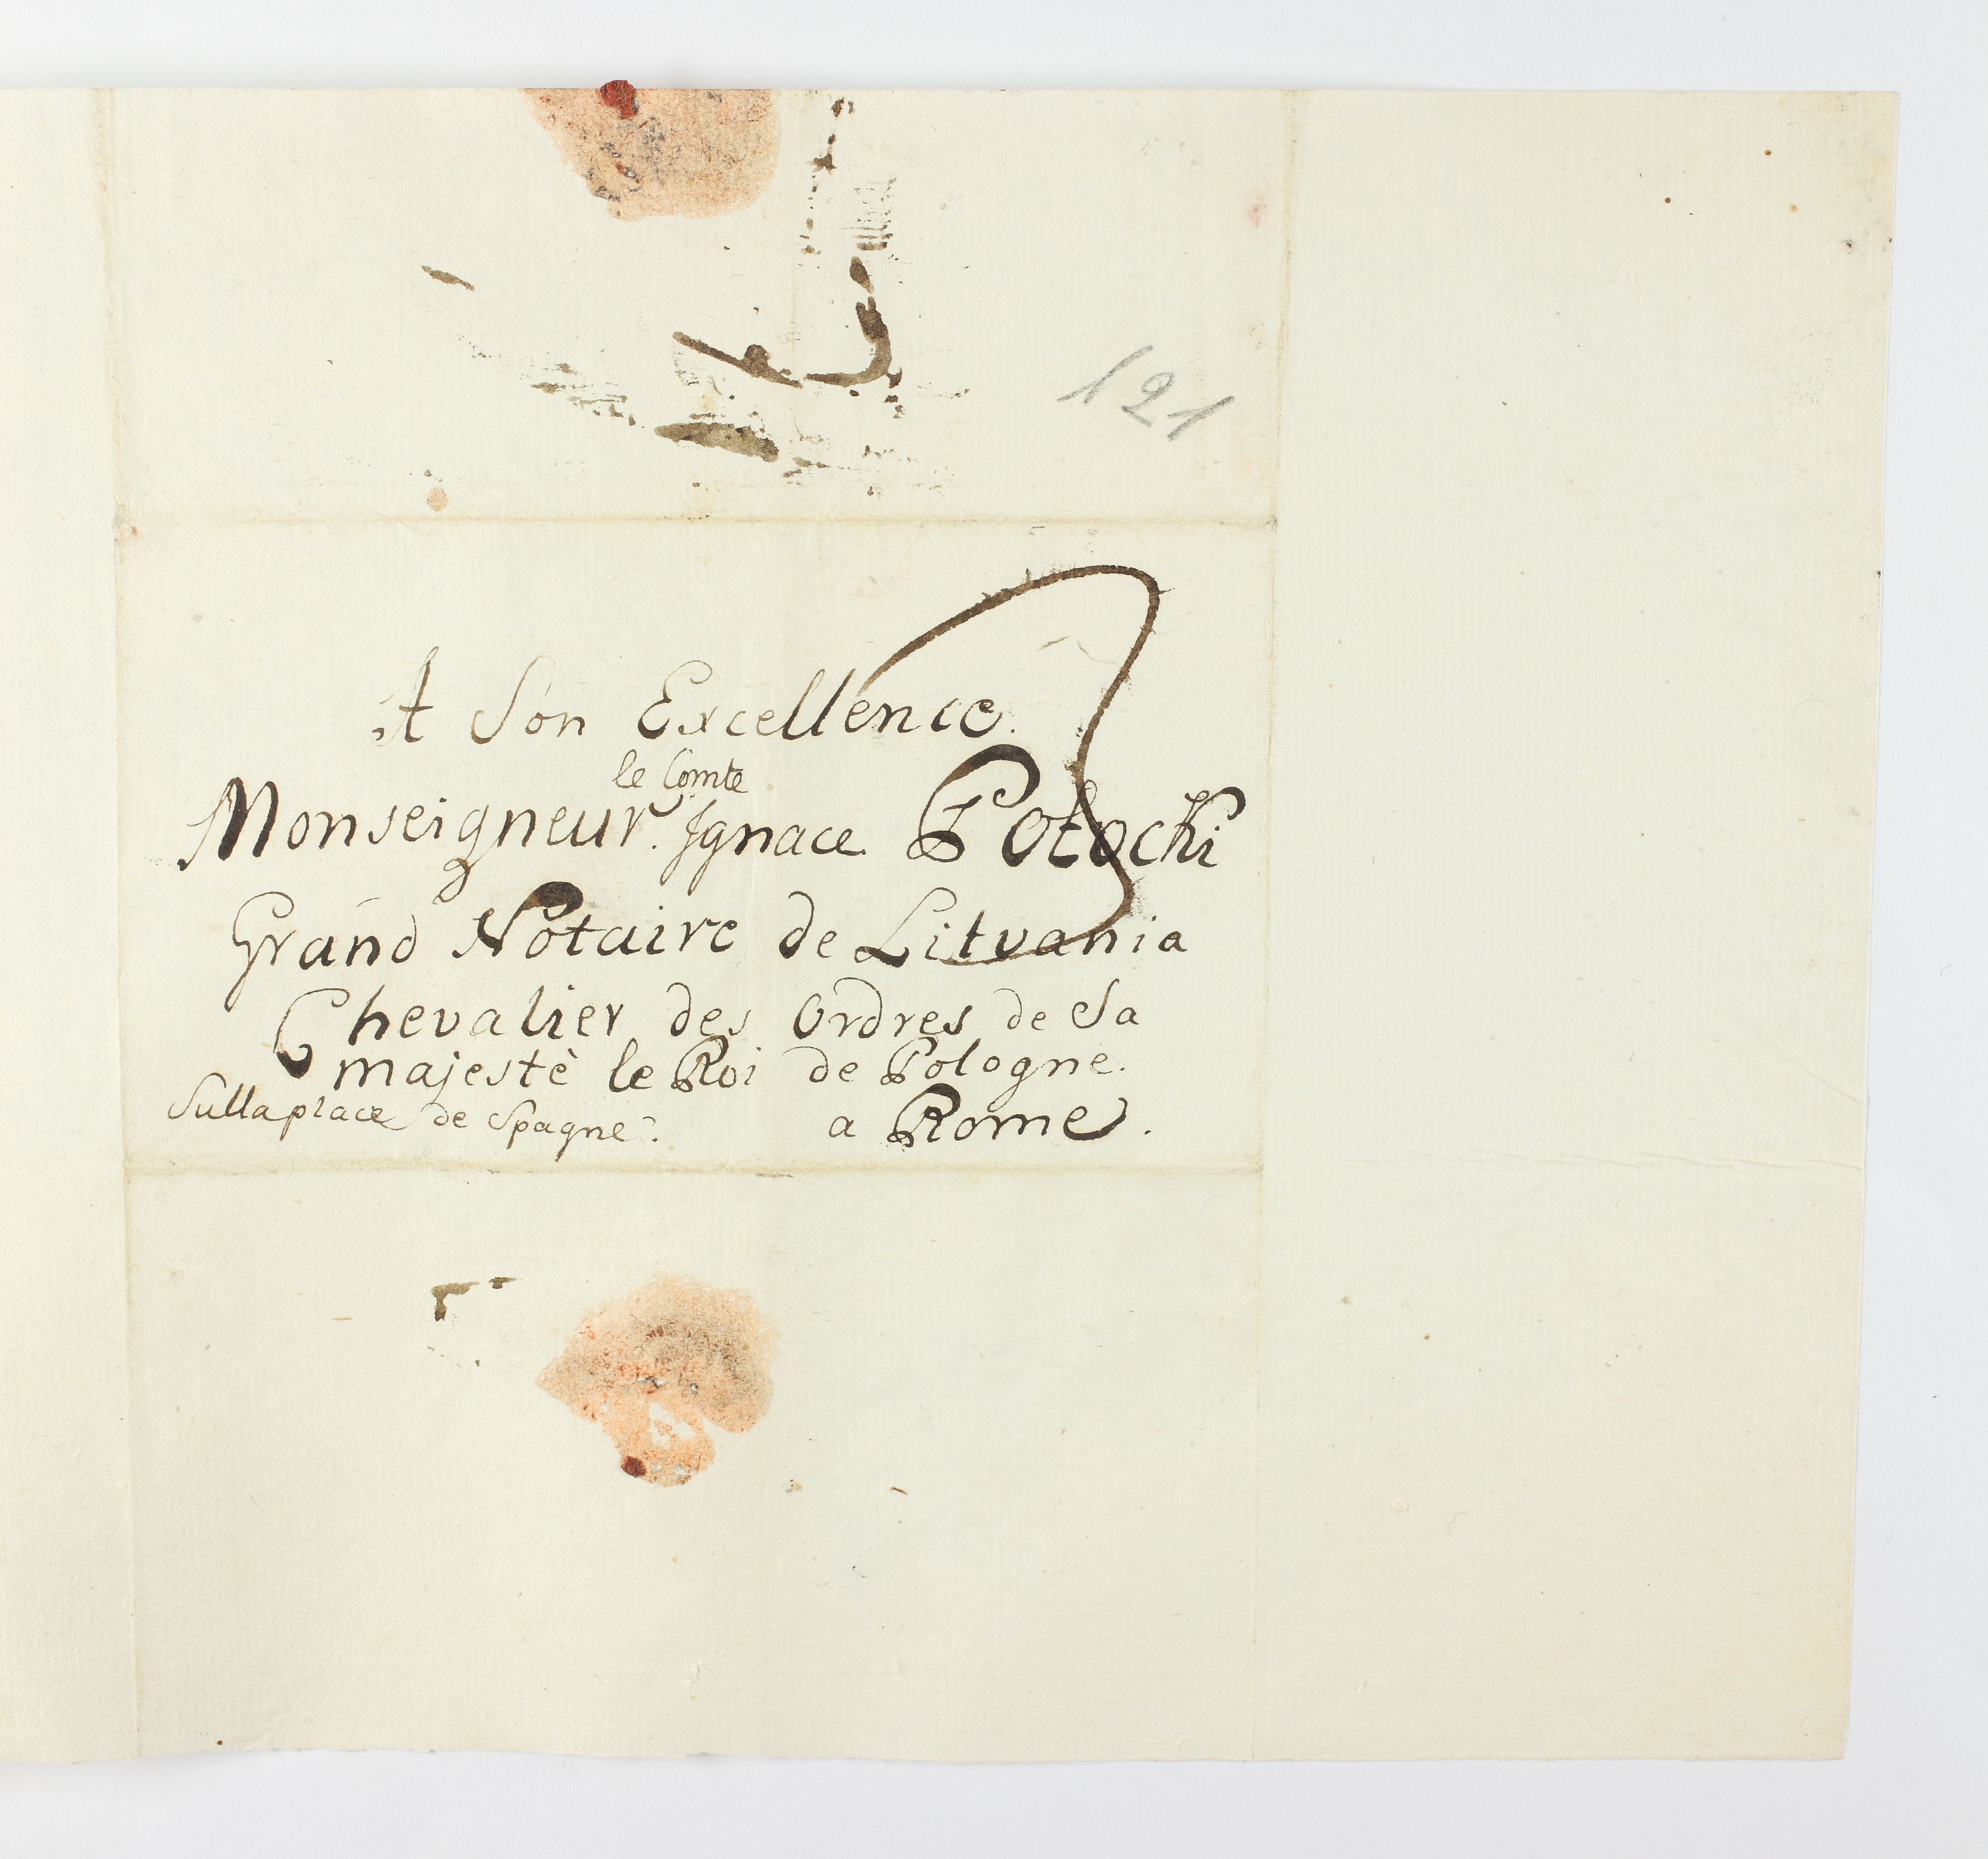 121
A Son Excellence.
le Comte
Monseigneur. Ignace Potocki
Grand Notaire de Litvania
Chevalier des Ordres de Sa
majestè le Roi de Pologne.
Sulla place de Spagne.
a Rome.